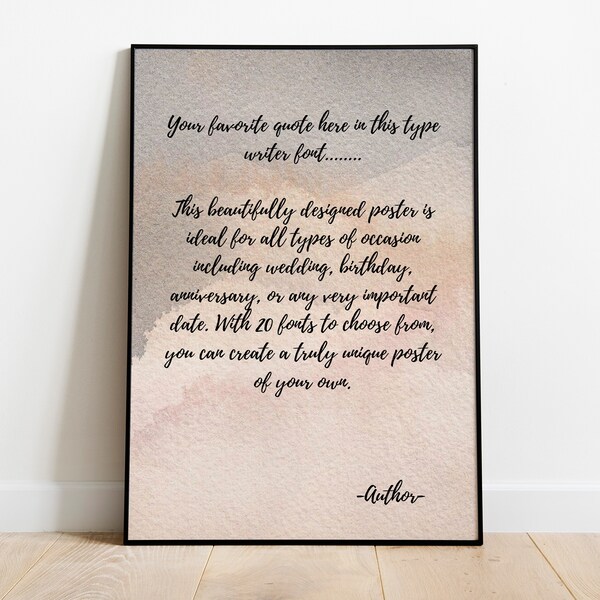 Your favorite quote here in this type
writer font........
This beautifully designed poster is
ideal for all types of occasion
including wedding, birthday,
anniversary, or any very important
date. With 20 fonts to choose from,
you can create a truly unique poster
of your own.
-Author-